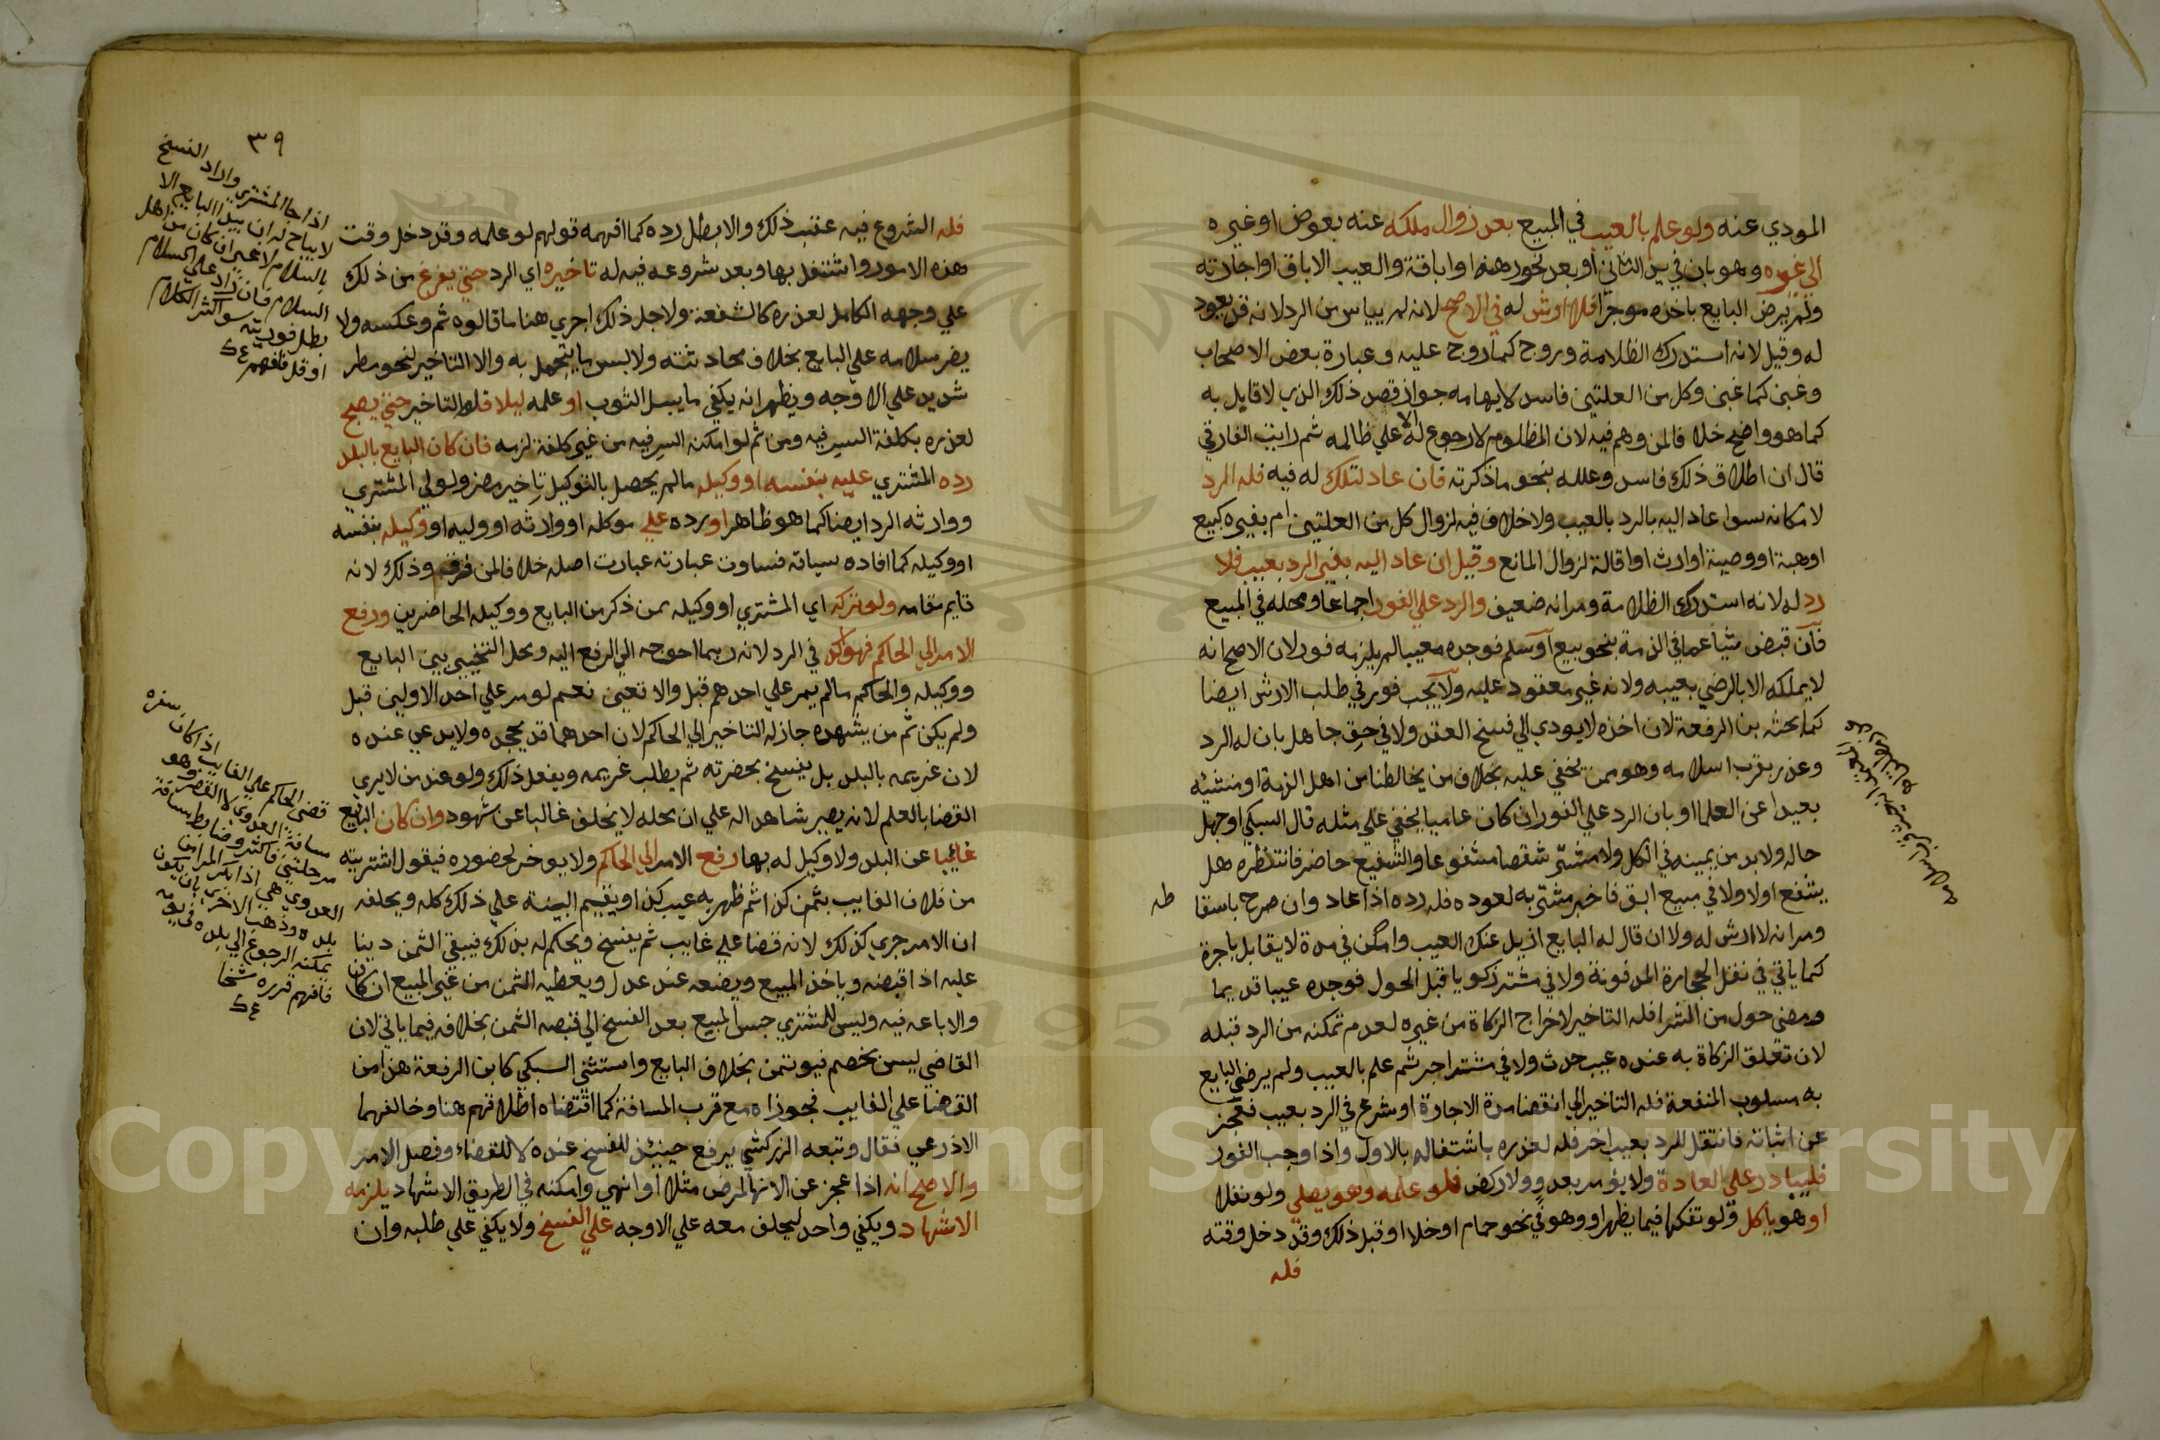 المودي عنه ولو علم بالعيب في المبيع بعد زوال ملكه عنه بعوض او غيره
الي غيره وهو بان في يد الثاني او بعد نحو رهنه او اباقة والعيب الاباق او اجارته
ولم يرض البايع باخذه موجرا فلا ارش له في الاصح لانه لم يياس من الرد لانه قد يعود
له وقيل لانه استدرك الظلامة وروج كما روج عليه وعبارة بعض الاصحاب
وغبن كما غبن وكل من العلتين فاسد لايهامه جواز قصد ذلك الذي لا قايل به
كما هو واضح خلافا لمن وهم فيه لان المظلوم لا رجوع له الا علي ظالمه ثم رايت الفارقي
قال ان اطلاق ذلك فاسد وعلله بنحو ما ذكرته فان عاد لتلك له فيه فله الرد
لامكانه سوا عاد اليه بالرد بالعيب ولا خلاف فيه لزوال كل من العلتين ام بغيره كبيع
او هبة او وصية او ارث او اقالة لزوال المانع وقيل ان عاد اليه بغير الرد بعيب فلا
رد له لانه استدرك الظلامة ومر انه ضعيف والرد علي الفور اجماعا ومحله في المبيع
فان قبض شيأ عما في الذمة بنحو بيع او سلم فوجده معيبا لم يلزمه فور لان الاصح انه
لا يملكه الا بالرضي بعيبه ولانه غير معقود عليه ولا يجب فور في طلب الارش ايضا
كما بحثه بن الرفعة لان اخذه لا يودي الي فسخ العقد ولا في حق جاهل بان له الرد
وعذر بقرب اسلامه وهو ممن يخفي عليه بخلاف من يخالطنا من اهل الذمة او منشئه
بعيدا عن العلما او بان الرد علي الفور ان كان عاميا يخفي علي مثله قال السبكي او جهل
حاله ولا بد من يمينه في الكل ولا مشتر شقصا مشفوعا والشفيع حاضر فانتظره هل
يشفع اولا ولا في مبيع ابق فاخر مشتريه لعوده فله رده اذا عاد وان صرح باسقا
ط
ومر انه لا ارش له ولا ان قال له البايع ازيل عنك العيب وامكن في مدة لا يقابل باجرة
كما ياتي في نقل الحجارة المدفونة ولا في مشتر زكويا قبل الحول فوجده عيبا قديما
ومضي حول من الشرا فله التاخير لاخراج الزكاة من غيره لعدم تمكنه من الرد قبله
لان تعلق الزكاة به عنده عيب حدث ولا في مشتر اجر ثم علم بالعيب ولم يرض البايع
به مسلوب المنفعة فله التاخير الي انقضا مدة الاجارة او شرع في الرد بعيب فعجز
عن اثباته فانتقل للرد بعيب اخر فله لعذره باشتغاله بالاول واذا وجب الفور
فليبادر علي العادة ولا يؤمر بعدو ولا ركض فلو علمه وهو يصلي ولو نفلا
او هو ياكل ولو تفكها فيما يظهر او وهو في نحو حمام او خلا او قبل ذلك وقد دخل وقته
فله
٣٩
فله الشروع فيه عقب ذلك والا بطل رده كما افهمه قولهم لو علمه وقد دخل وقت
هذه الامور واشتغل بها وبعد شروعه فيه له تاخيره اي الرد حتي يفرغ من ذلك
علي وجهه الكامل لعذره كالشفعة ولاجل ذلك اجري هنا ما قالوه ثم وعكسه ولا
يضر سلامه علي البايع بخلاف محادثته ولا لبس ما يتجمل به ولا التاخير لنحو مطر
شديد علي الاوجه ويظهر انه يكفي ما يبل الثوب او علمه ليلا فله التاخير حتي يصبح
لعذره بكلفة السير فيه ومن ثم لو امكنه السير فيه من غير كلفة لزمه فان كان البايع بالبلد
رده المشتري عليه بنفسه او وكيله مالم يحصل بالتوكيل تاخير مضر ولولي المشتري
ووارثه الرد ايضا كما هو ظاهر او رده علي موكله او وارثه او وليه او وكيله بنفسه
او وكيله كما افاده سياقه فساوت عبارته عبارت اصله خلافا لمن فرق وذلك لانه
قايم مقامه ولو تركه اي المشتري او وكيله من ذكر من البايع ووكيله الحاضرين ورفع
الامر الي الحاكم فهو اكد في الرد لانه ربما احوجه الي الرفع اليه ومحل التخيير بين البايع
ووكيله والحاكم مالم يمر علي احدهم قبل والا تعين نعم لو مر علي احد الاولين قبل
ولم يكن ثم من يشهده جاز له التاخير الي الحاكم لان احدهما قد يجحده ولا يدعي عنده
لان غريمه بالبلد بل يفسخ بحضرته ثم يطلب غريمه ويفعل ذلك ولو عند من لا يري
القضا بالعلم لانه يصير شاهدا له علي ان محله لا يخلو غالبا عن شهود وان كان البايع
غايبا عن البلد ولا وكيل له بها رفع الامر الي الحاكم ولا يوخر لحضوره فيقول اشتريته
من فلان الغايب بثمن كذا ثم ظهر به عيب كذا ويقيم البينة علي ذلك كله ويحلفه
ان الامر جري كذلك لانه قضا علي غايب ثم يفسخ ويحكم له بذلك فيبقي الثمن دينا
عليه اذا قبضه وياخذ المبيع ويضعه عند عدل ويعطيه الثمن من غير المبيع ان كان
والا باعه فيه وليس للمشتري حبس المبيع بعد الفسخ الي قبضه الثمن بخلافه فيما ياتي لان
القاضي ليس بخصم فيوتمن بخلاف البايع واستثني السبكي كابن الرفعة هذا من
القضا علي الغايب فجوزاه مع قرب المسافة كما اقتضاه اطلاقهم هنا وخالفهما
الاذرعي فقال وتبعه الزركشي يرفع حينئذ للفسخ عنده لا للقضاء وفصل الامر
والاصح انه اذا عجز عن الانها لمرض مثلا او انهي وامكنه في الطريق الاشهاد يلزمه
الاشهاد ويكفي واحد ليحلف معه علي الاوجه علي الفسخ ولا يكفي علي طلبه وان
اذا جا المشتري واراد الفسخ
لا يباح له ان يبدا البايع الا
بالسلام لا غير ان كان من اهل
السلام فان زاد علي السلام
بطل فوريته سوا كثر الكلام
او قل فافهم
قضي الحاكم علي الغايب اذا كان سفره
مسافة العدوي لا القصر وهو
مرحلتين فاكثر وضابط مسافة
العدوي هي اذا بكر المرء من
بلده وذهب الاخري بان يكون
يمكنه الرجوع الي بلده في يومه
فافهم قرره شيخنا